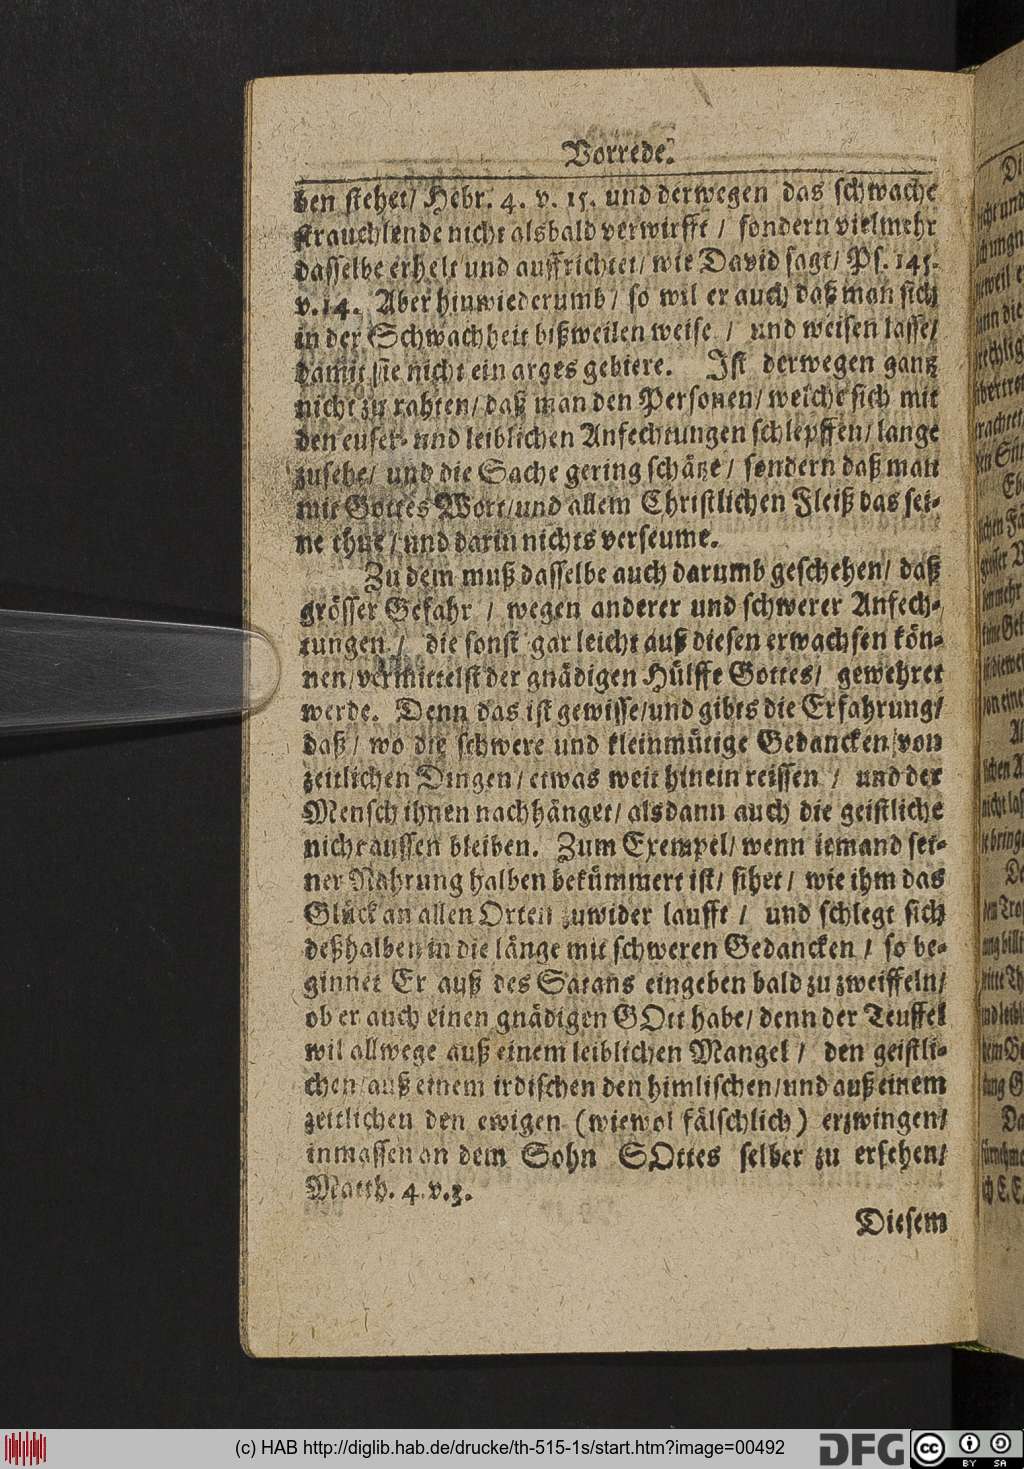 Vorrede.
ben stehet/ Hebr. 4. v. 15. und derwegen das schwache
strauchlende nicht alsbald verwirfft / sondern vielmehr
dasselbe erhelt und auffrichtet/ wie David sagt/ Ps. 145.
v. 14. Aber hinwiederumb/ so wil er auch daß man sich
in der Schwachheit bißweilen weise / und weisen lasse/
damit sie nicht ein arges gebiere. Ist derwegen gantz
nicht zu rahten/ daß man den Personen/ welche sich mit
den euser- und leiblichen Anfechtungen schlepffen/ lange
zusehe/ und die Sache gering schätze/ sondern daß man
mit Gottes Wort/und allem Christlichen Fleiß das sei-
ne thue/ und darin nichts verseume.
Zu dem muß dasselbe auch darumb geschehen/ daß
grösser Gefahr / wegen anderer und schwerer Anfech-
tungen / die sonst gar leicht auß diesen erwachsen kön-
nen/vermittelst der gnädigen Hülffe Gottes/ gewehret
werde. Denn das ist gewisse/und gibts die Erfahrung/
daß/ wo die schwere und kleinmütige Gedancken/von
zeitlichen Dingen/ etwas weit hinein reissen / und der
Mensch ihnen nachhänget/ alsdann auch die geistliche
nicht aussen bleiben. Zum Exempel/ wenn iemand sei-
ner Nahrung halben bekümmert ist/ sihet/ wie ihm das
Glück an allen Orten zuwider laufft / und schlegt sich
deßhalben in die länge mit schweren Gedancken / so be-
ginnet Er auß des Satans eingeben bald zu zweiffeln/
ob er auch einen gnädigen GOtt habe/ denn der Teuffel
wil allwege auß einem leiblichen Mangel / den geistli-
chen/auß einem irdischen den himlischen/und auß einem
zeitlichen den ewigen (wiewol fälschlich) erzwingen/
inmassen an dem Sohn GOttes selber zu ersehen/
Matth. 4. v. 3.
Diesem
(c) HAB http://diglib.hab.de/drucke/th-515-1s/start.htm?image=00492
DFG
cc BY SA